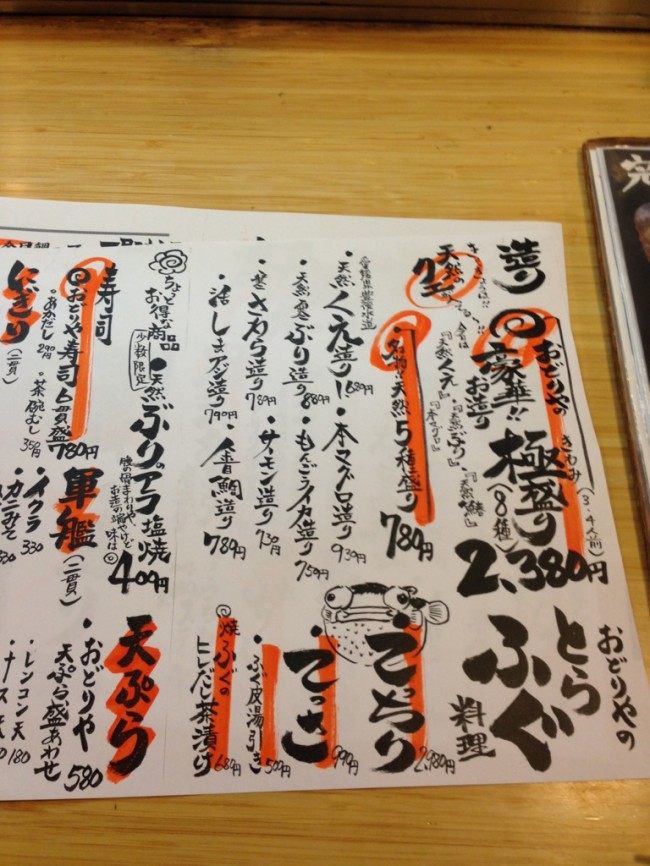 造り
おどりやの
豪華!!
お造り
極盛り
きわみ
(3.4人前)
(8種)
2,380円
天然の
クエ
『天然くえ』
『天然ぶり』
『本マグロ』
『天然鯛』
名物!!天然5種盛り
780円
愛媛県豊後水道
・天然くえ造り!!
・天然寒ぶり造り
880円
・寒さわら造り
789円
・活しまアジ造り
790円
・本マグロ造り
930円
・もんごうイカ造り
750円
・サーモン造り
730円
・金目鯛造り
789円
ちょっとお得な商品
少数限定
・天然ぶりのアラ塩焼
409円
寿司
おどりや寿司6貫盛
780円
・あかだし 290円
・茶碗むし 350円
にぎり
(一貫)
軍艦
(二貫)
・イクラ 330
・カニみそ
おどりやの
とらふぐ
料理
・てっちり
2,980円
・てっさ
990円
・ふぐ皮湯引き
500円
焼ふぐの
ヒレだし茶漬け
680円
天ぷら
・おどりや
天ぷら盛あわせ
580
・レンコン天 180